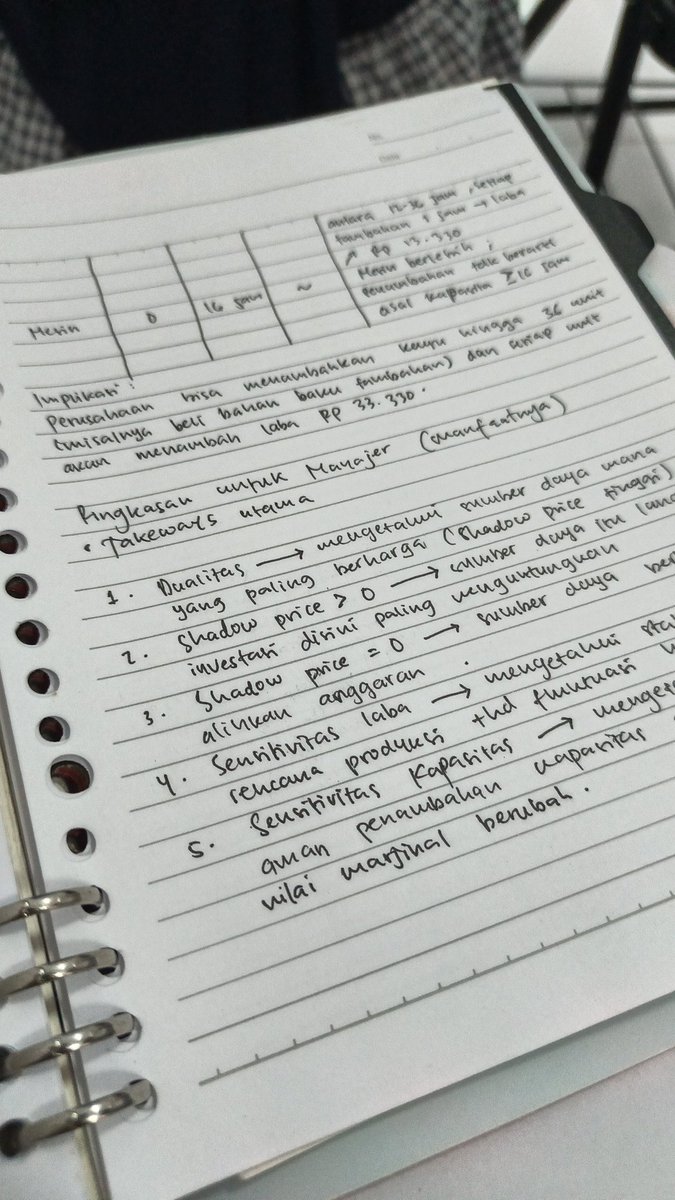 antara 12-36 jam, setiap
tambahan 1 jam → laba
↗ Rp 33.330
Mesin berlebih ;
Penambahan tdk berarti
asal kapasitas ≥ 16 jam
Mesin 0 16 jam ~
Implikasi :
Perusahaan bisa menambahkan kayu hingga 36 unit
(misalnya beli bahan baku tambahan) dan setiap unit
akan menambah laba Rp 33.330.
Ringkasan untuk Manajer (manfaatnya)
• Takeways utama
1. Dualitas → mengetahui sumber daya mana
yang paling berharga (shadow price tinggi)
2. Shadow price > 0 → sumber daya itu
investasi disini paling menguntungkan
3. Shadow price = 0 → sumber daya
alihkan anggaran.
4. Sensitivitas laba → mengetahui
rencana produksi thd fluktuasi
5. Sensitivitas Kapasitas →
aman penambahan kapasitas
nilai marjinal berubah.